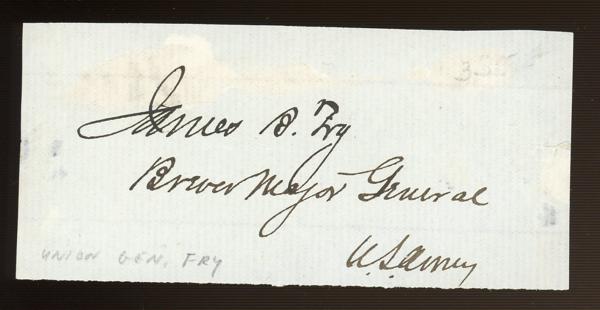 James B. Fry
Brevet Major General
U.S. Army
UNION GEN. FRY